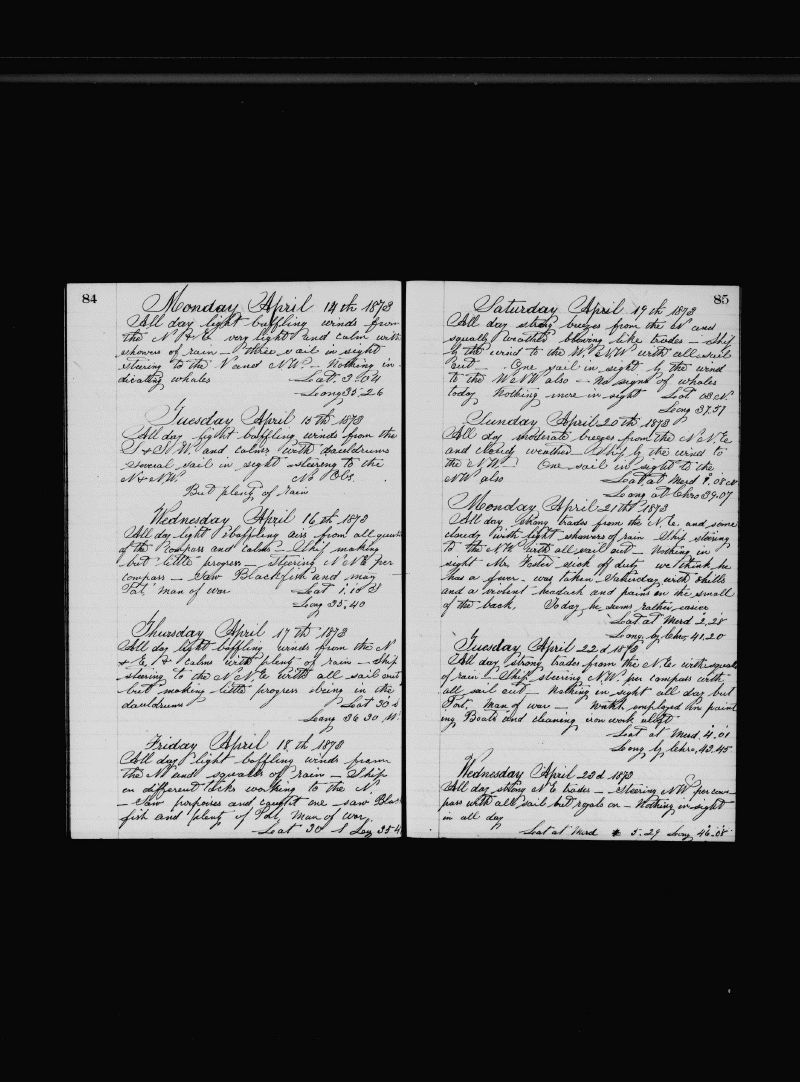 84
Monday April 14th 1873
All day light baffling winds from
the N & E very light and calm with
showers of rain — three sail in sight
steering to the N and NW. — Nothing in-
dicating whales Lat. 3.04
Long 35.26
Tuesday April 15th 1873
All day light baffling winds from the
S & S.W. and calms with dauldrums
several sail in sight steering to the
N & NW. No Obs.
But plenty of rain
Wednesday April 16th 1873
All day light & baffling airs from all quart
of the compass and calms — Ship making
but little progress — steering N N E per
compass — Saw Blackfish and may
Pot, man of war Lat 1.18
Long 35.40
Thursday April 17th 1873
All day light baffling winds from the N
& E, & calms with plenty of rain — Ship
steering to the N N E with all sail out
but making little progress being in the
dauldrums Lat 30
Long 36 30 W.
Friday April 18th 1873
All day light baffling winds from
the N and squalls of rain — Ship
on different tacks working to the N.
— Saw porpoises and caught one — saw Black
fish and plenty of Pot, man of war.
Lat 30 N Long 35.4
85
Saturday April 19th 1873
All day strong breezes from the N and
squally weather blowing like trades — Ship
by the wind to the W.&NW with all sail
out — One sail in sight by the wind
to the W&NW also — No signs of whales
today Nothing more in sight Lat 03 N.
Long 37.57
Sunday April 20th 1873
All day moderate breezes from the N N.E
and cloudy weather Ship by the wind to
the NW. One sail in sight to the
NW also Lat at Merd 1.08 N
Long at Chro 39.07
Monday April 21st 1873
All day strong trades from the N.E. and some
cloudy with light showers of rain Ship steering
to the NW with all sail out — Nothing in
sight Mr. Foster sick off duty we think he
has a fever — was taken Saturday with chills
and a violent headach and pains in the small
of the back, Today he seems rather easier
Lat at Merd 2.28
Long by Chro, 41.20
Tuesday April 22d 1873
All day strong trades from the N.E. with squalls
of rain — Ship steering N.W. per compass with
all sail out — Nothing in sight all day but
Pot, man of war — Watch employed in paint
ing Boats and cleaning iron work aloft
Lat at Merd. 4.01
Long by Chro, 43.45
Wednesday April 23d 1873
All day strong N E trades — Steering NW per com
pass with all sail but royals on — Nothing in sight
in all day
Lat at Merd 5.29 Long 46.08